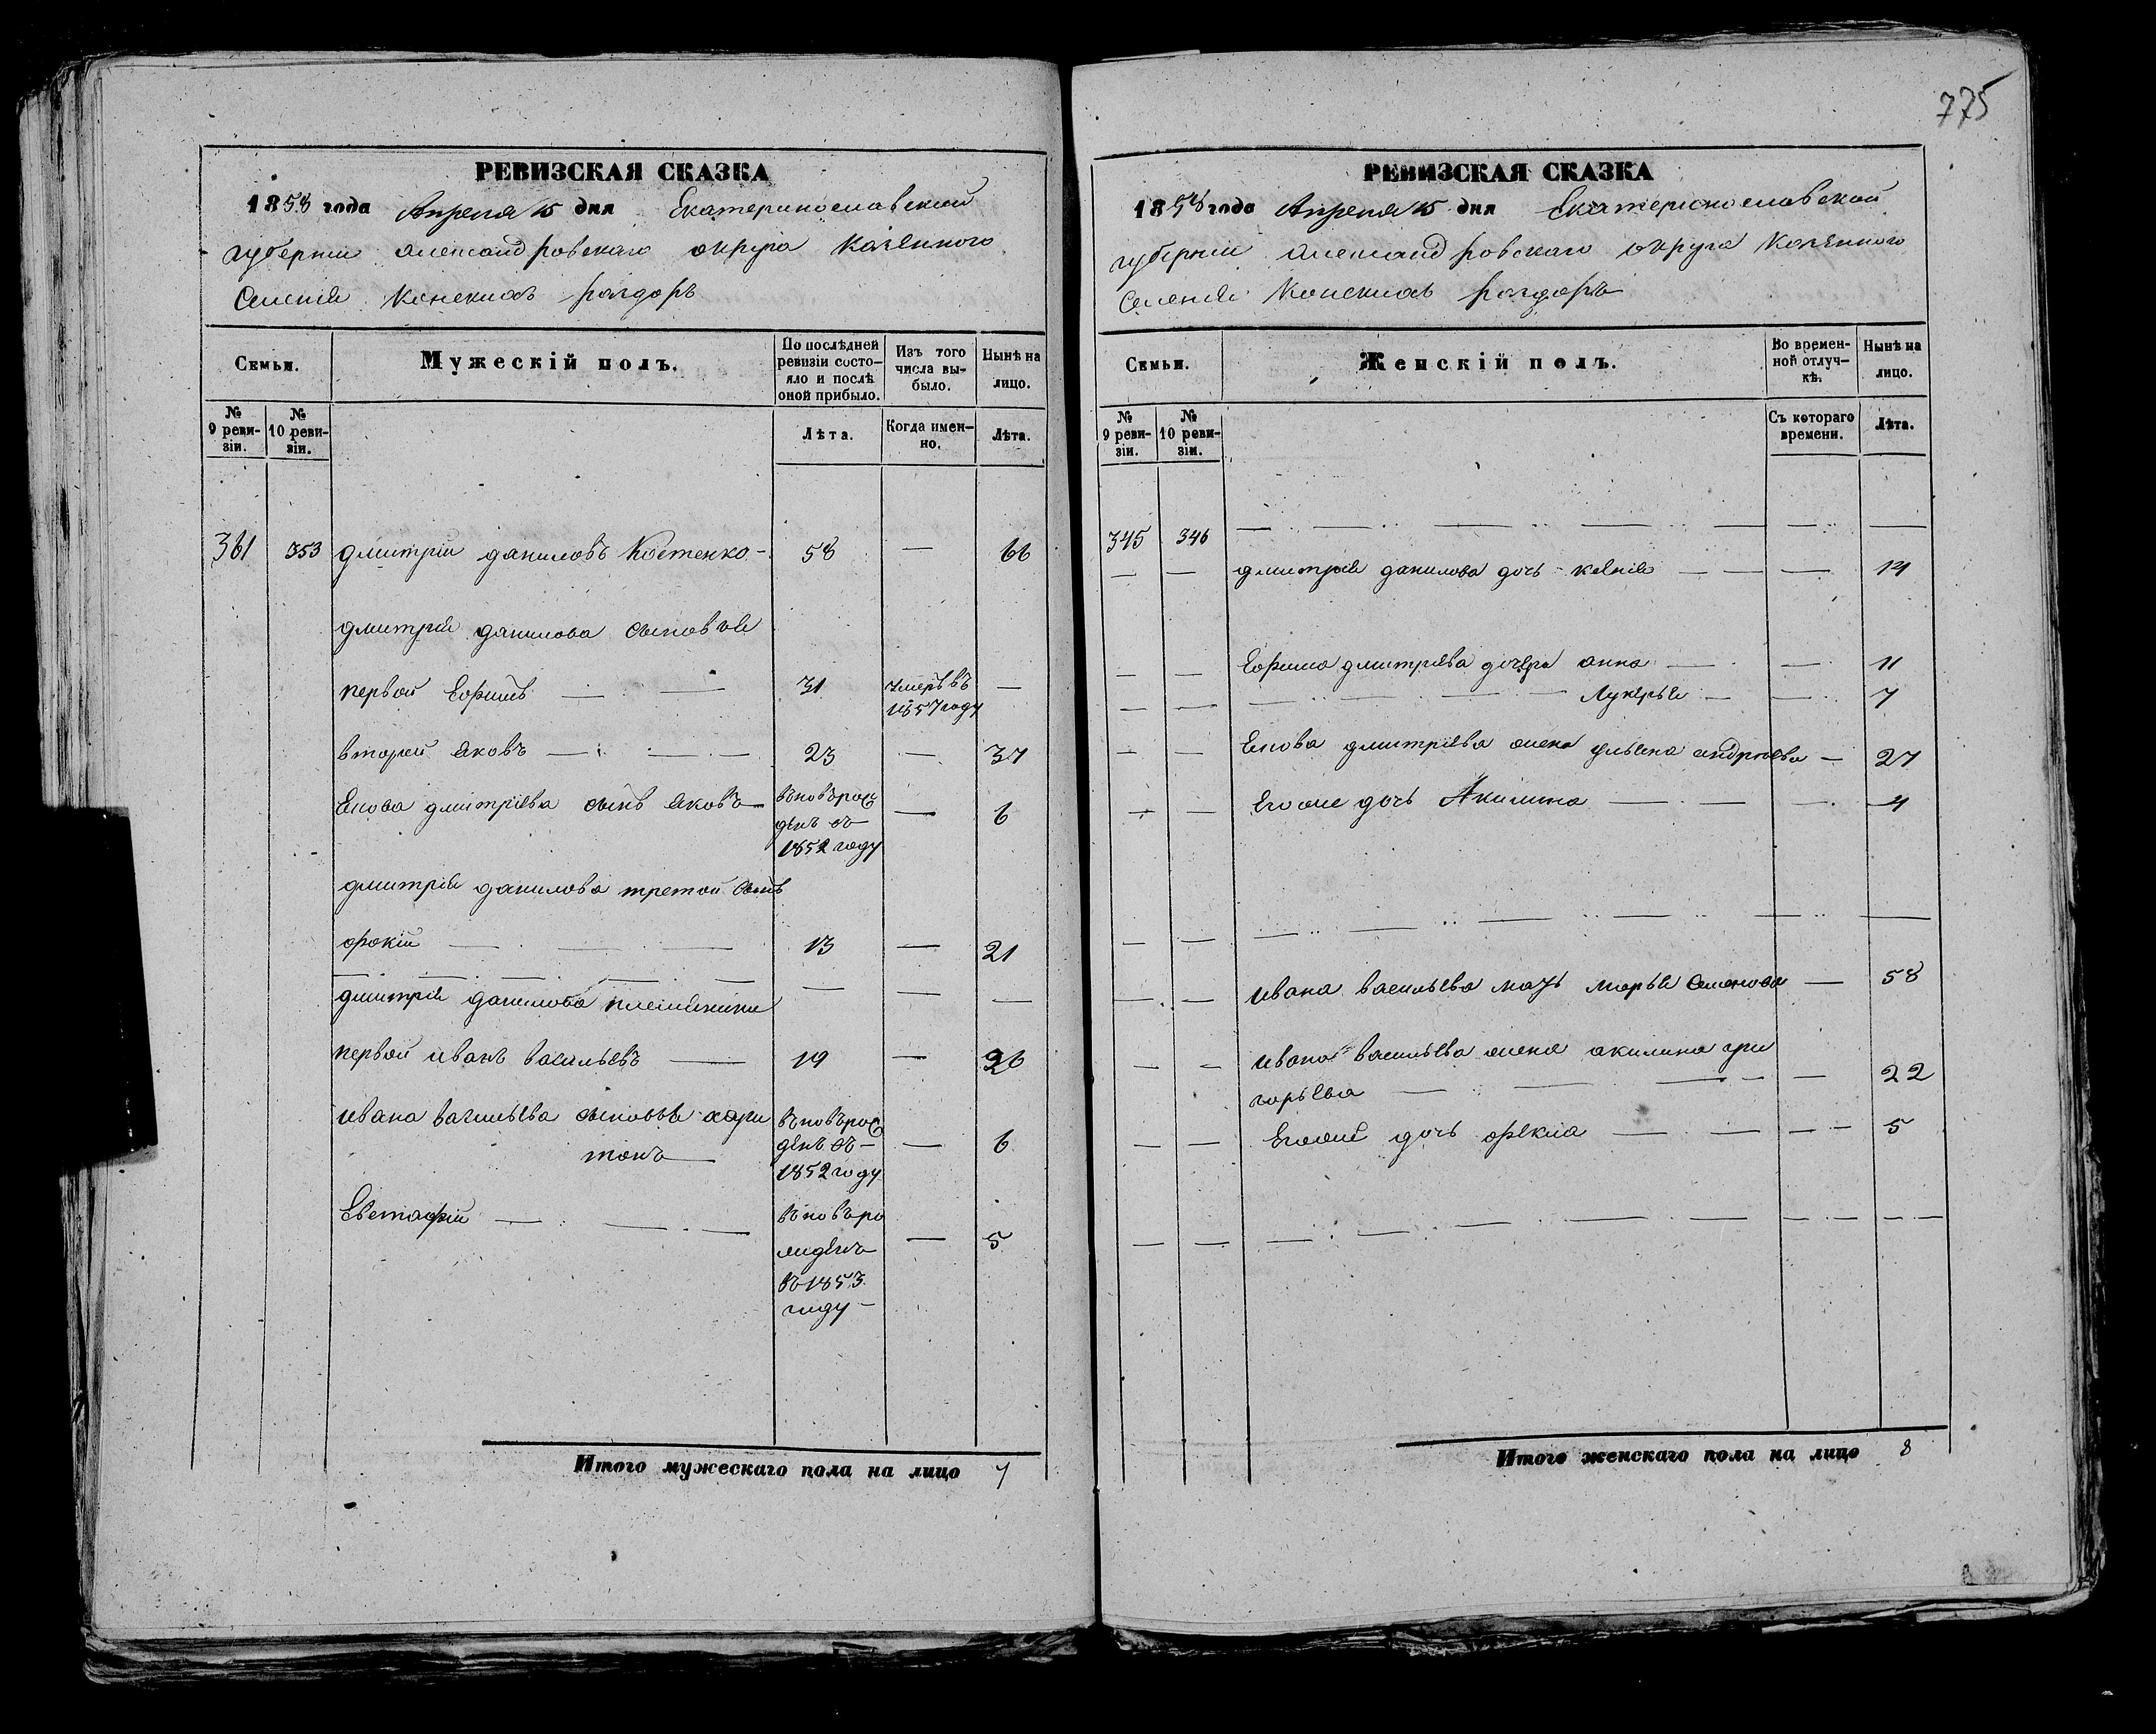 775
РЕВИЗСКАЯ СКАЗКА
1858 года Апреля 15 дня Екатеринославской
губернии александровскаго округа казенного
Селения Конекихъ раздоръ
Семьи.
Мужескій полъ.
По послѣдней ревизіи состо-
яло и послѣ оной прибыло.
Изъ того числа вы-
было.
Нынѣ на лицо.
№ 9 реви-
зіи.
№ 10 реви-
зіи.
Лѣта.
Когда имен-
но.
Лѣта.
361 353 дмитрий даниловъ Костенко - 58 — 66
дмитрия данилова сыновья
первой Ефимъ — 31 умеръ въ 1857 году —
второй яковъ — 23 — 31
дмитриева сынъ яковъ — въновърож
денъ въ
1852 году — 6
дмитрия данилова третой сынъ
фокій — 13 — 21
дмитрия данилова племянники — — —
первой иванъ васильевъ — 19 — 26
ивана васильева сыновья хари
тонъ — въновърож
денъ въ —
1852 году — 6
Евстафій — въновъро
жденъ
въ 1853
году — — 5
Итого мужескаго пола на лицо 7
РЕВИЗСКАЯ СКАЗКА
1858 года Апреля 15 дня Екатеринославской
губернии александровскаго округа казенного
Селения Конекихъ раздоръ
Семьи.
Женскій полъ.
Во времен-
ной отлуч-
кѣ.
Нынѣ на лицо.
№ 9 реви-
зіи.
№ 10 реви-
зіи.
Съ котораго времени.
Лѣта.
345 346 — — —
— — дмитрия данилова дочь ксения — — 14
— — Ефима дмитриева дочери анна — — 11
— — — Лукерья — — 7
— — дмитриева жена ульяна андреева — 27
— — Егоже дочь Акилина — — 4
— — — — —
— — ивана васильева мать марья Семенова — 58
— — ивана васильева жена акилина гри
горьева — — 22
— — Егоже дочь фекла — — 5
— — — — —
Итого женскаго пола на лицо 8